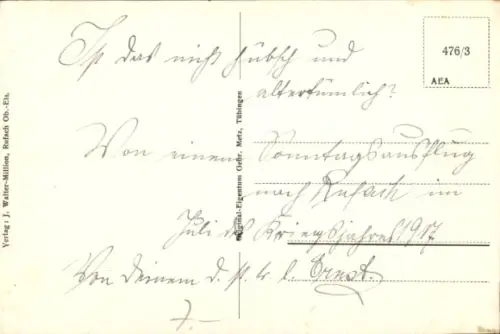 Ist das nicht hübsch und
altertümlich?
Von einem Sonntagsausflug
nach Rufach im
Juli des Kriegsjahres 1917
Von Deinem d. Ernst.
7.–
476/3
AEA
Verlag: J. Walter-Million, Rufach Ob.-Els.
Original-Eigentum Gebr. Metz, Tübingen